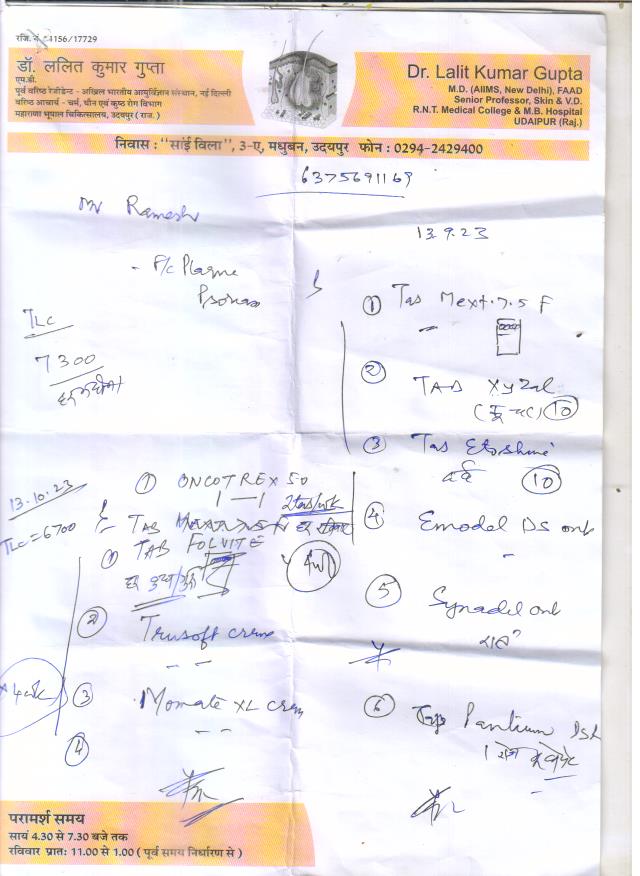 रजि. नं. 4156/17729
डॉ. ललित कुमार गुप्ता
एम.डी.
पूर्व वरिष्ठ रेजीडेन्ट - अखिल भारतीय आयुर्विज्ञान संस्थान, नई दिल्ली
वरिष्ठ आचार्य - चर्म, यौन एवं कुष्ठ रोग विभाग
महाराणा भूपाल चिकित्सालय, उदयपुर ( राज. )
Dr. Lalit Kumar Gupta
M.D. (AIIMS, New Delhi), FAAD
Senior Professor, Skin & V.D.
R.N.T. Medical College & M.B. Hospital
UDAIPUR (Raj.)
निवास : "सांई विला", 3-ए, मधुबन, उदयपुर फोन : 0294-2429400
6375691169
Mr Ramesh
13.9.23
P/c Plaque
TLC
7300
① Tab Mext. 7.5 F
② TAB Xyzal
10
③ Tab Etoshine
दर्द 10
④ Emodel DS oint
⑤ Synadel oint
⑥ Pantium DSR
13.10.23
TLC = 6700
① ONCOTREX 50
1 — 1 2tab/wk
TAB
① TAB FOLVITE
② Trusoft creme
③ Momate XL crem
④
परामर्श समय
सायं 4.30 से 7.30 बजे तक
रविवार प्रात: 11.00 से 1.00 ( पूर्व समय निर्धारण से )